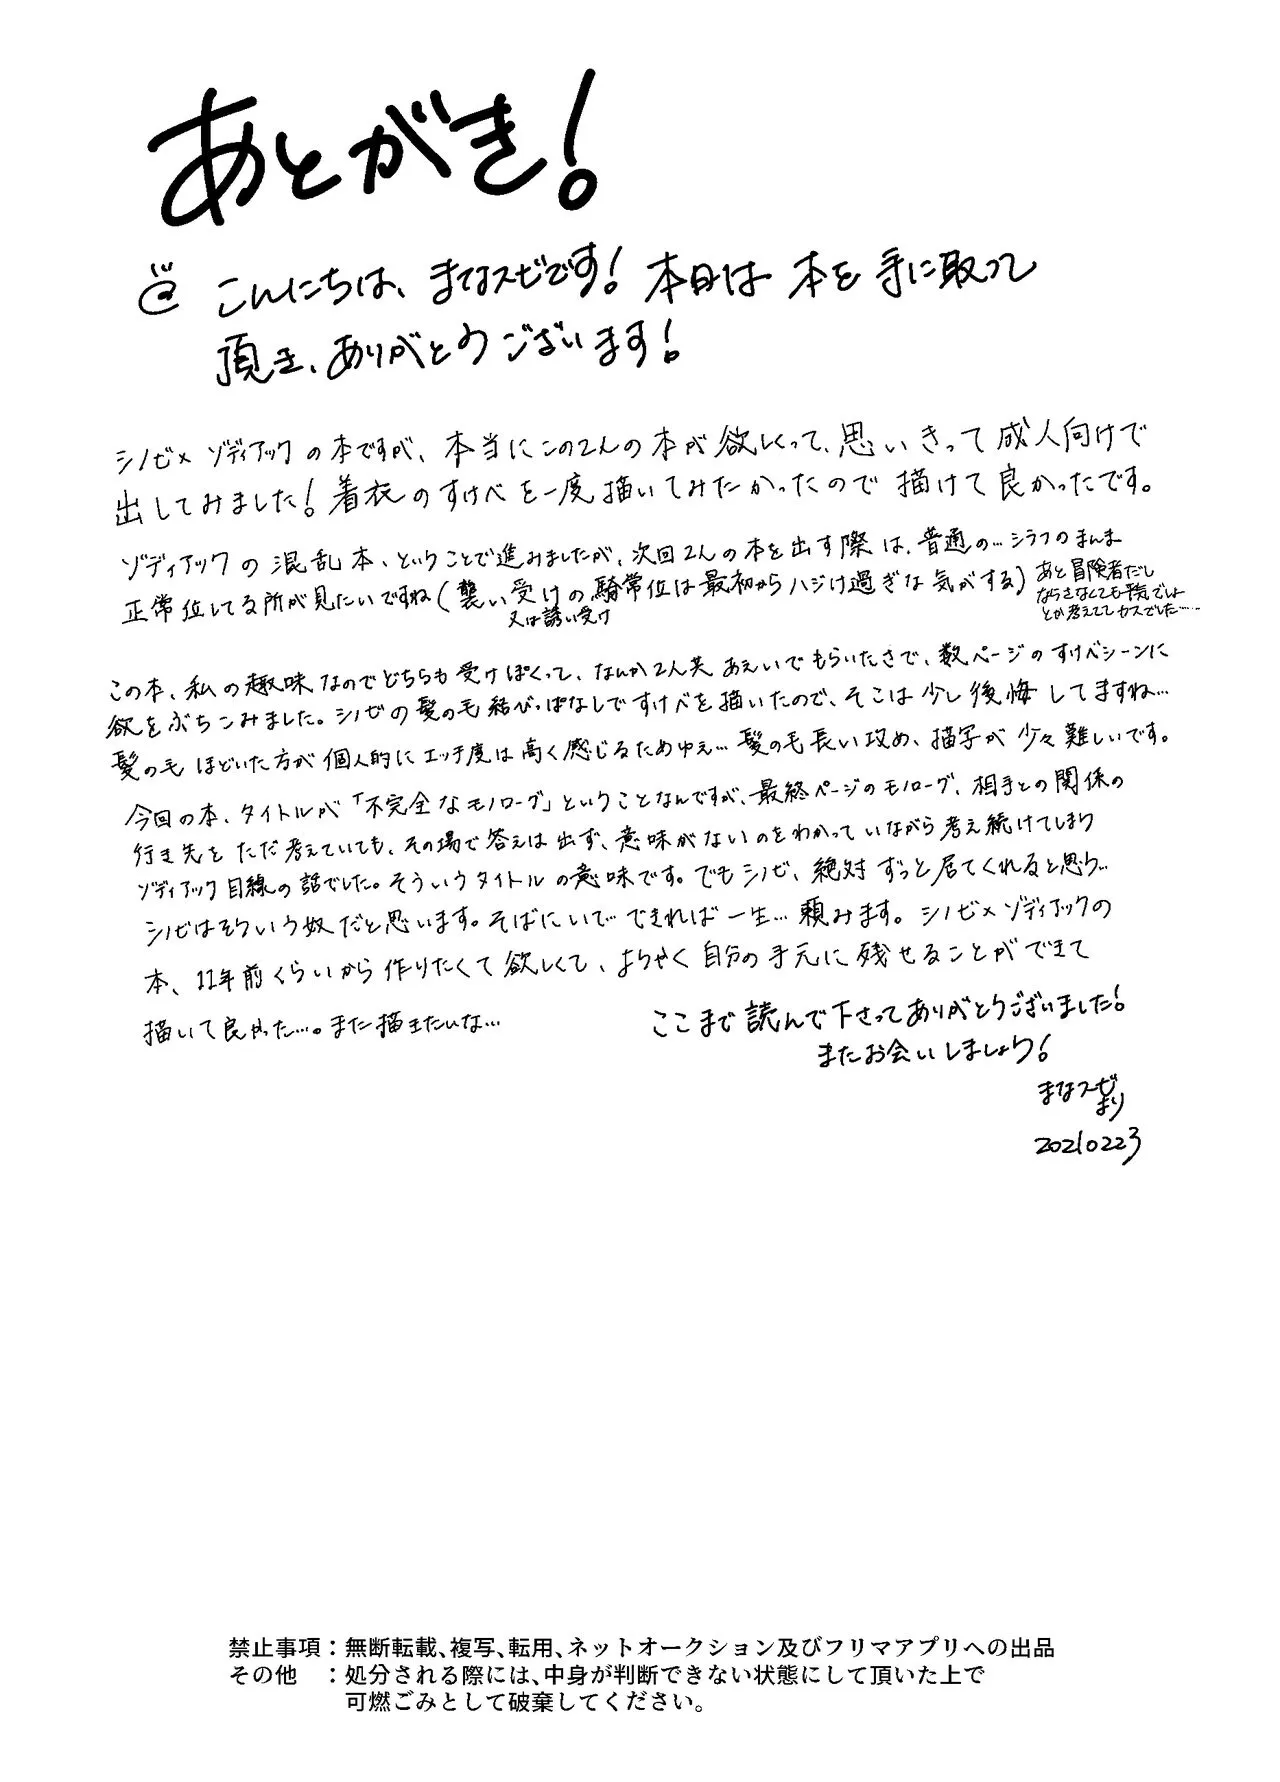 あとがき!
こんにちは、まなスゼです! 本日は 本を 手に取って
頂き、ありがとうございます!
シノビ×ゾディアックの本ですが、本当にこの2人の本が欲しくって、思いきって成人向けで
出してみました!着衣のすけべを一度描いてみたかったので描けて良かったです。
ゾディアックの混乱本、ということで進みましたが、次回2人の本を出す際は、普通の…シラフのまんま
正常位してる所が見たいですね(襲い受けの騎常位は最初からハジけ過ぎな気がする)
又は誘い受け
あと冒険者だし
ならさなくても平気でしょ
とか考えててカスでした……
この本、私の趣味なのでどちらも受けぽくって、なんか2人共あえいでもらいたさで、数ページのすけべシーンに
欲をぶちこみました。シノビの髪の毛結びっぱなしですけべを描いたので、そこは少し後悔してますね…
髪の毛ほどいた方が個人的にエッチ度は高く感じるためゆえ…髪の毛長い攻め、描写が少々難しいです。
今回の本、タイトルが「不完全なモノローグ」ということなんですが、最終ページのモノローグ、相手との関係の
行き先をただ考えていても、その場で答えは出ず、意味がないのをわかっていながら考え続けてしまう
ゾディアック目線の話でした。そういうタイトルの意味です。でもシノビ、絶対ずっと居てくれると思う…
シノビはそういう奴だと思います。そばにいて できれば一生…頼みます。シノビ×ゾディアックの
本、11年前くらいから作りたくて欲しくて、ようやく自分の手元に残せることができて
描いて良かった…。また描きたいな…
ここまで読んで下さってありがとうございました!
またお会いしましょう!
まなスゼ
より
20210223
禁止事項:無断転載、複写、転用、ネットオークション及びフリマアプリへの出品
その他 :処分される際には、中身が判断できない状態にして頂いた上で
可燃ごみとして破棄してください。